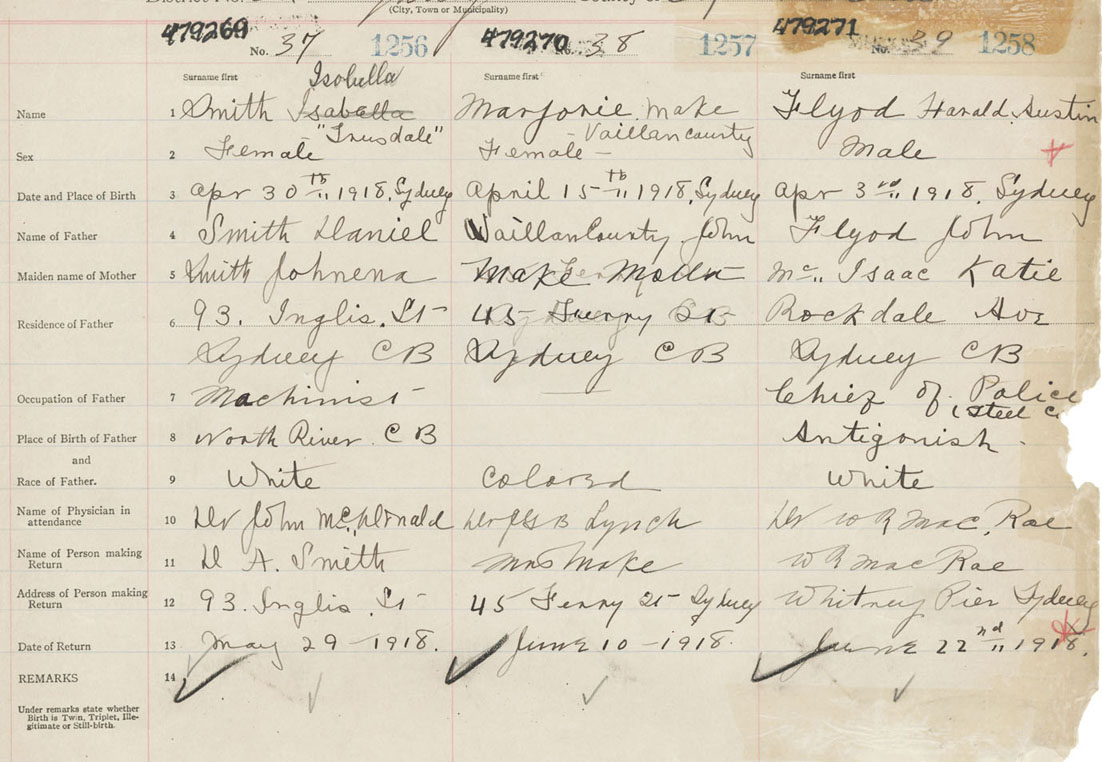 (City, Town or Municipality)
479269 No. 37 1256 479270 38 1257 479271 No. 39 1258
Surname first Isobella Surname first Surname first
Name 1 Smith Isabella Marjorie Make Flyod Harald Austin
"Trusdale" Vaillancounty
Sex 2 Female Female - Male
Date and Place of Birth 3 Apr 30th 1918, Sydney April 15th 1918, Sydney Apr 3rd 1918, Sydney
Name of Father 4 Smith Daniel Vaillancounty John Flyod John
Maiden name of Mother 5 Smith Johnena Make Mc Isaac Katie
Residence of Father 6 93. Inglis. St 45 St Rockdale Ave
Sydney CB Sydney CB Sydney CB
Occupation of Father 7 Machinist — Chief of Police
(Steel
Place of Birth of Father 8 North River CB Antigonish
and
Race of Father. 9 White Colored White
Name of Physician in
attendance 10 Dr John McDonald Lynch Dr W R Mac. Rae
Name of Person making
Return 11 D A. Smith Mrs Make W R Mac Rae
Address of Person making
Return 12 93. Inglis St 45 Ferry St Sydney Whitney Pier Sydney
Date of Return 13 May 29 - 1918. June 10 - 1918 June 22nd 1918.
REMARKS 14
Under remarks state whether
Birth is Twin, Triplet, Ille-
gitimate or Still-birth.